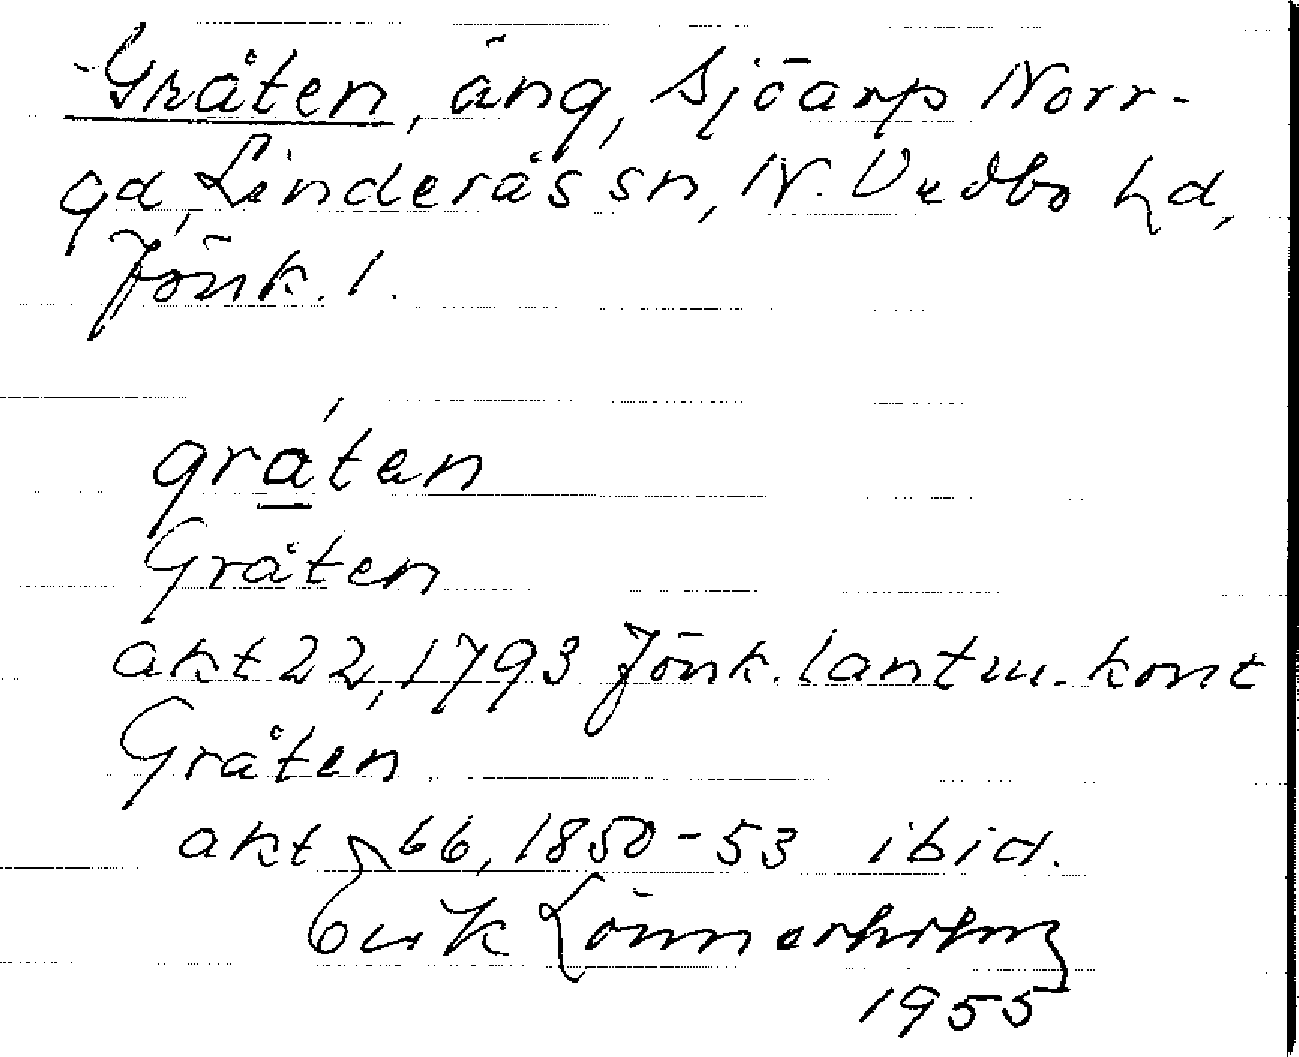 Gråten, äng, Sjöarp Norr-
gd, Linderås sn, N. Vedbo hd,
Jönk. l.
gráten
Gråten
akt 22, 1793 Jönk. lantm. kont
Gråten
akt 66, 1850-53 ibid.
Erik Lönnerholm
1955